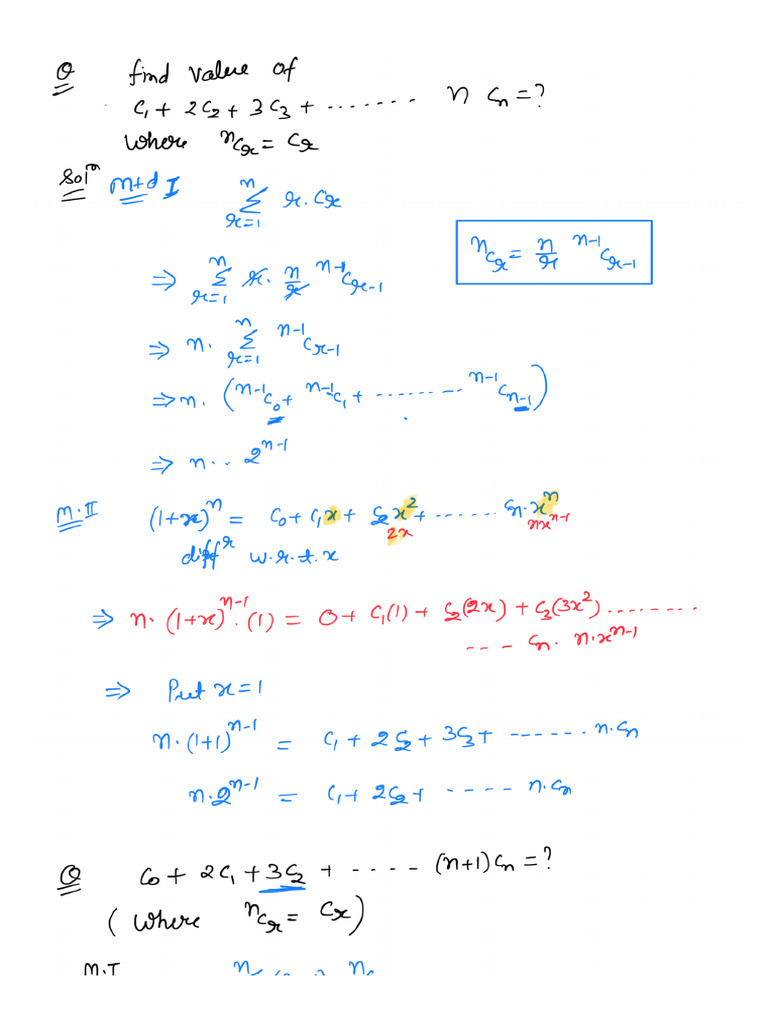 Q find value of
C₁ + 2C₂ + 3C₃ + ........ n Cₙ = ?
where ⁿCᵣ = Cᵣ
Solⁿ Mtd I ⁿΣᵣ₌₁ r. Cᵣ
ⁿCᵣ = n/r ⁿ⁻¹Cᵣ₋₁
⇒ ⁿΣᵣ₌₁ r. n/r ⁿ⁻¹Cᵣ₋₁
⇒ n. ⁿΣᵣ₌₁ ⁿ⁻¹Cᵣ₋₁
⇒ n. (ⁿ⁻¹C₀ + ⁿ⁻¹C₁ + ......... ⁿ⁻¹Cₙ₋₁)
⇒ n.. 2ⁿ⁻¹
M.II (1+x)ⁿ = C₀ + C₁x + C₂x² + ...... Cₙ.xⁿ
2x nxⁿ⁻¹
diffʳ w.r.t.x
⇒ n. (1+x)ⁿ⁻¹.(1) = 0 + C₁(1) + C₂(2x) + C₃(3x²) .........
.... Cₙ. n.xⁿ⁻¹
⇒ Put x = 1
n.(1+1)ⁿ⁻¹ = C₁ + 2C₂ + 3C₃ + ....... n.Cₙ
n.2ⁿ⁻¹ = C₁ + 2C₂ + ..... n.Cₙ
Q C₀ + 2C₁ + 3C₂ + ..... (n+1)Cₙ = ?
(where ⁿCᵣ = Cᵣ)
M.I